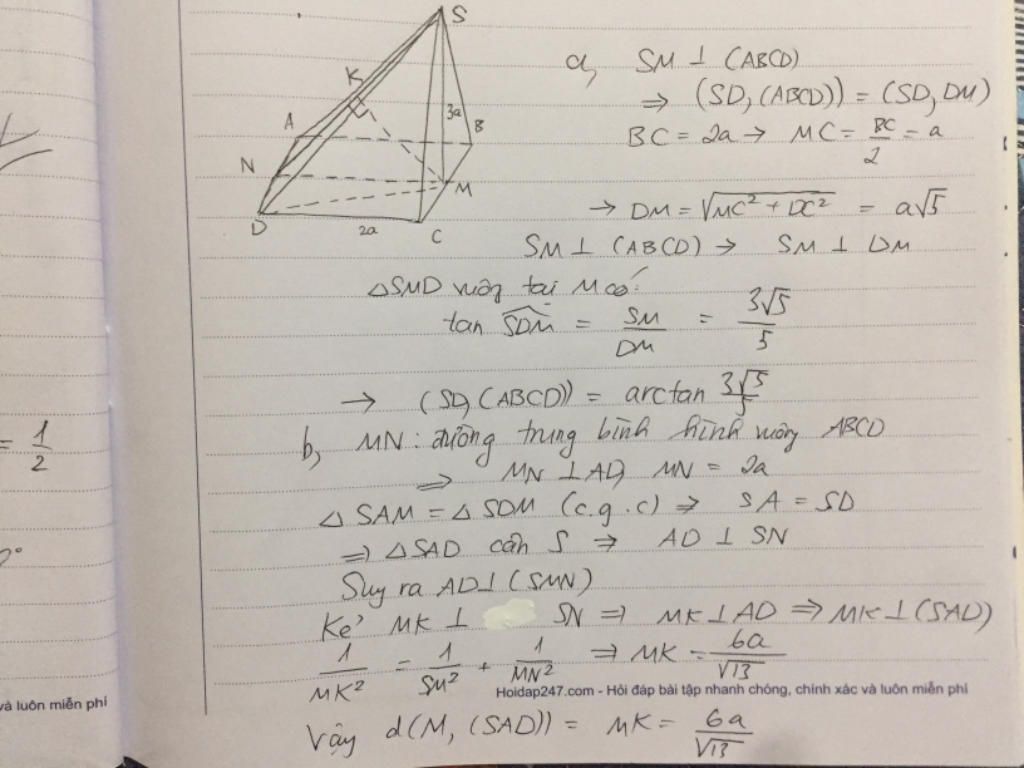 S
K
A
3a
B
N
M
D
2a
C
a, SM ⊥ (ABCD)
⇒ (SD, (ABCD)) = (SD, DM)
BC = 2a → MC = BC/2 = a
→ DM = √(MC² + DC²) = a√5
SM ⊥ (ABCD) → SM ⊥ DM
△SMD vuông tại M có:
tan SDM = SM/DM = 3√5/5
→ (SD, (ABCD)) = arctan 3√5/5
b, MN: đường trung bình hình vuông ABCD
⇒ MN ⊥ AD, MN = 2a
△ SAM = △ SDM (c.g.c) ⇒ SA = SD
⇒ △SAD cân S ⇒ AD ⊥ SN
Suy ra AD ⊥ (SMN)
Kẻ MK ⊥ SN ⇒ MK ⊥ AD ⇒ MK ⊥ (SAD)
1/MK² = 1/SM² + 1/MN² ⇒ MK = 6a/√13
Hoidap247.com - Hỏi đáp bài tập nhanh chóng, chính xác và luôn miễn phí
Vậy d(M, (SAD)) = MK = 6a/√13
= 1/2
và luôn miễn phí